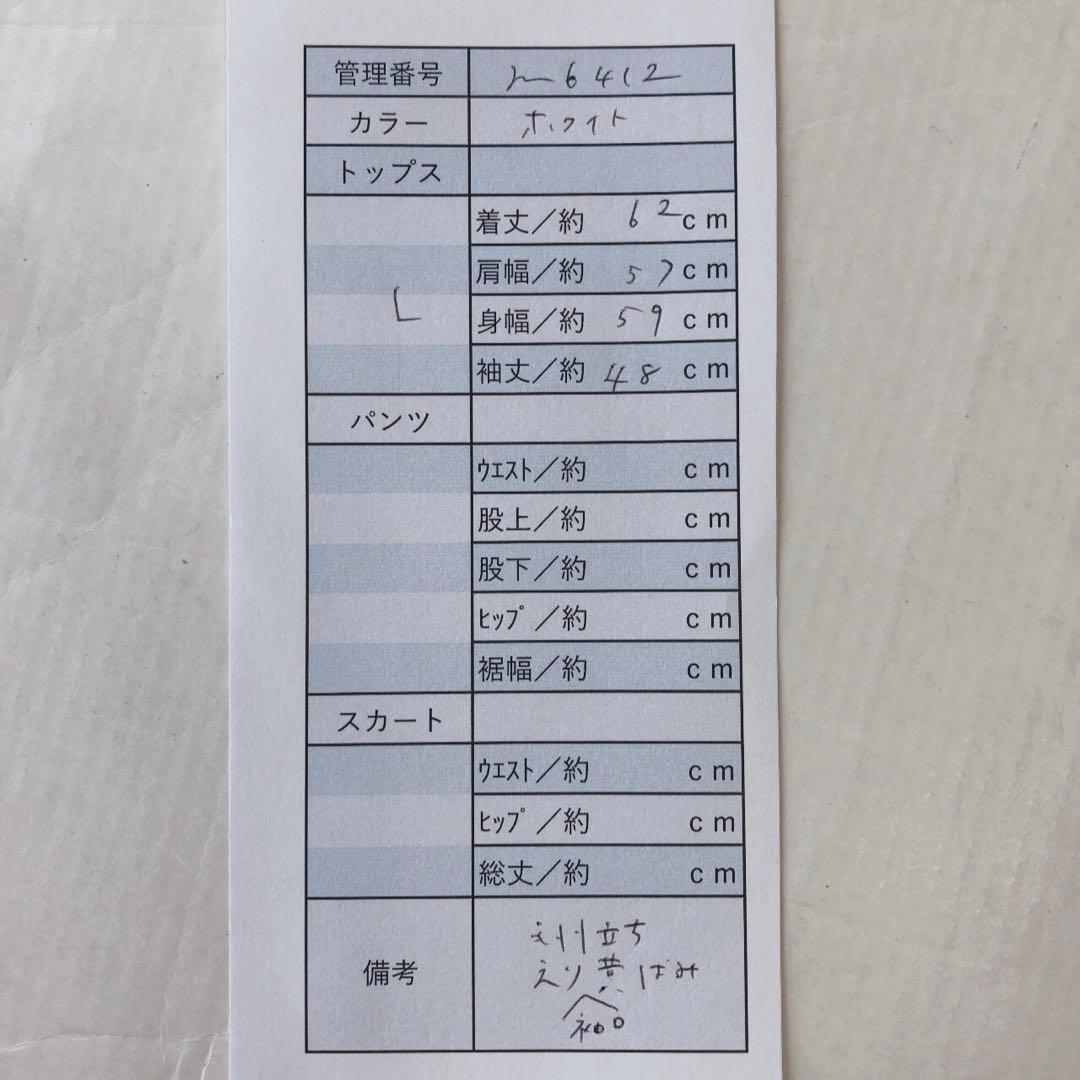 管理番号 m6412
カラー ホワイト
トップス
L
着丈／約 62cm
肩幅／約 57cm
身幅／約 59cm
袖丈／約 48cm
パンツ
ｳｴｽﾄ／約 cm
股上／約 cm
股下／約 cm
ﾋｯﾌﾟ／約 cm
裾幅／約 cm
スカート
ｳｴｽﾄ／約 cm
ﾋｯﾌﾟ／約 cm
総丈／約 cm
備考
毛羽立ち
えり黄ばみ
袖口